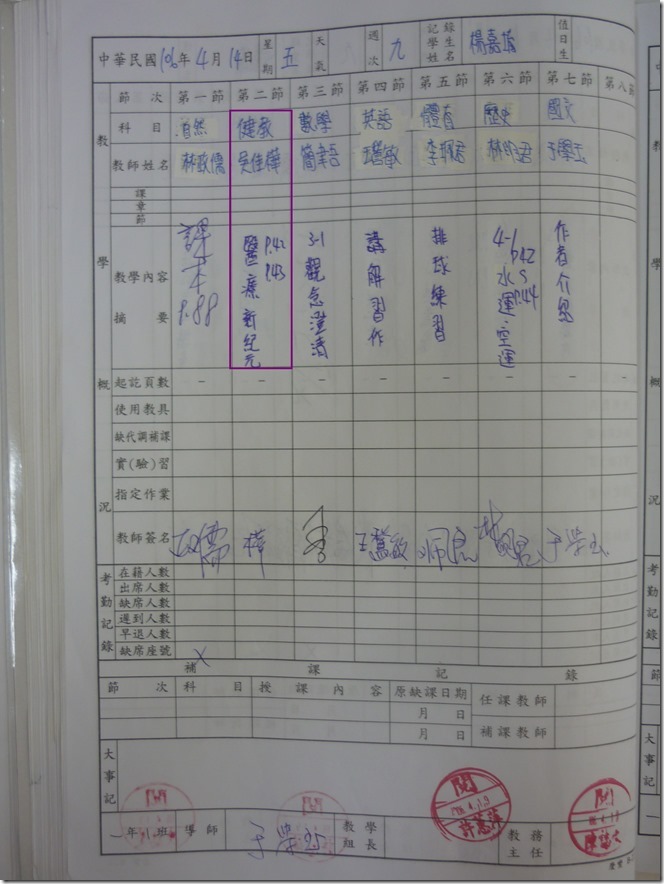 中華民國106年4月14日 星期 五 天氣 週次 九 記錄學生姓名 楊嘉 值日生
教學概況
節次 第一節 第二節 第三節 第四節 第五節 第六節 第七節 第八節
科目 自然 健教 數學 英語 體育 歷史 國文
教師姓名 林政儒 吳佳樺 簡聿吾 王鶯敏 李珮君 林明君 于學玉
課
章
節
教學內容摘要 課本P.88 醫療新紀元 P.42 P.43 3-1觀念澄清 講解習作 排球練習 4-1水運、空運 P.42 P.44 作者介紹
起訖頁數 – – – – – – –
使用教具
缺代調補課
實(驗)習
指定作業
教師簽名 樺 王鶯敏 于學玉
考勤記錄
在籍人數
出席人數
缺席人數
遲到人數
早退人數
缺席座號 X
補課記錄
節次 科目 授課內容 原缺課日期 任課教師
月 日
月 日 補課教師
大事記
閱 閱 閱 閱
一年 班 導師 教學組長 教務主任